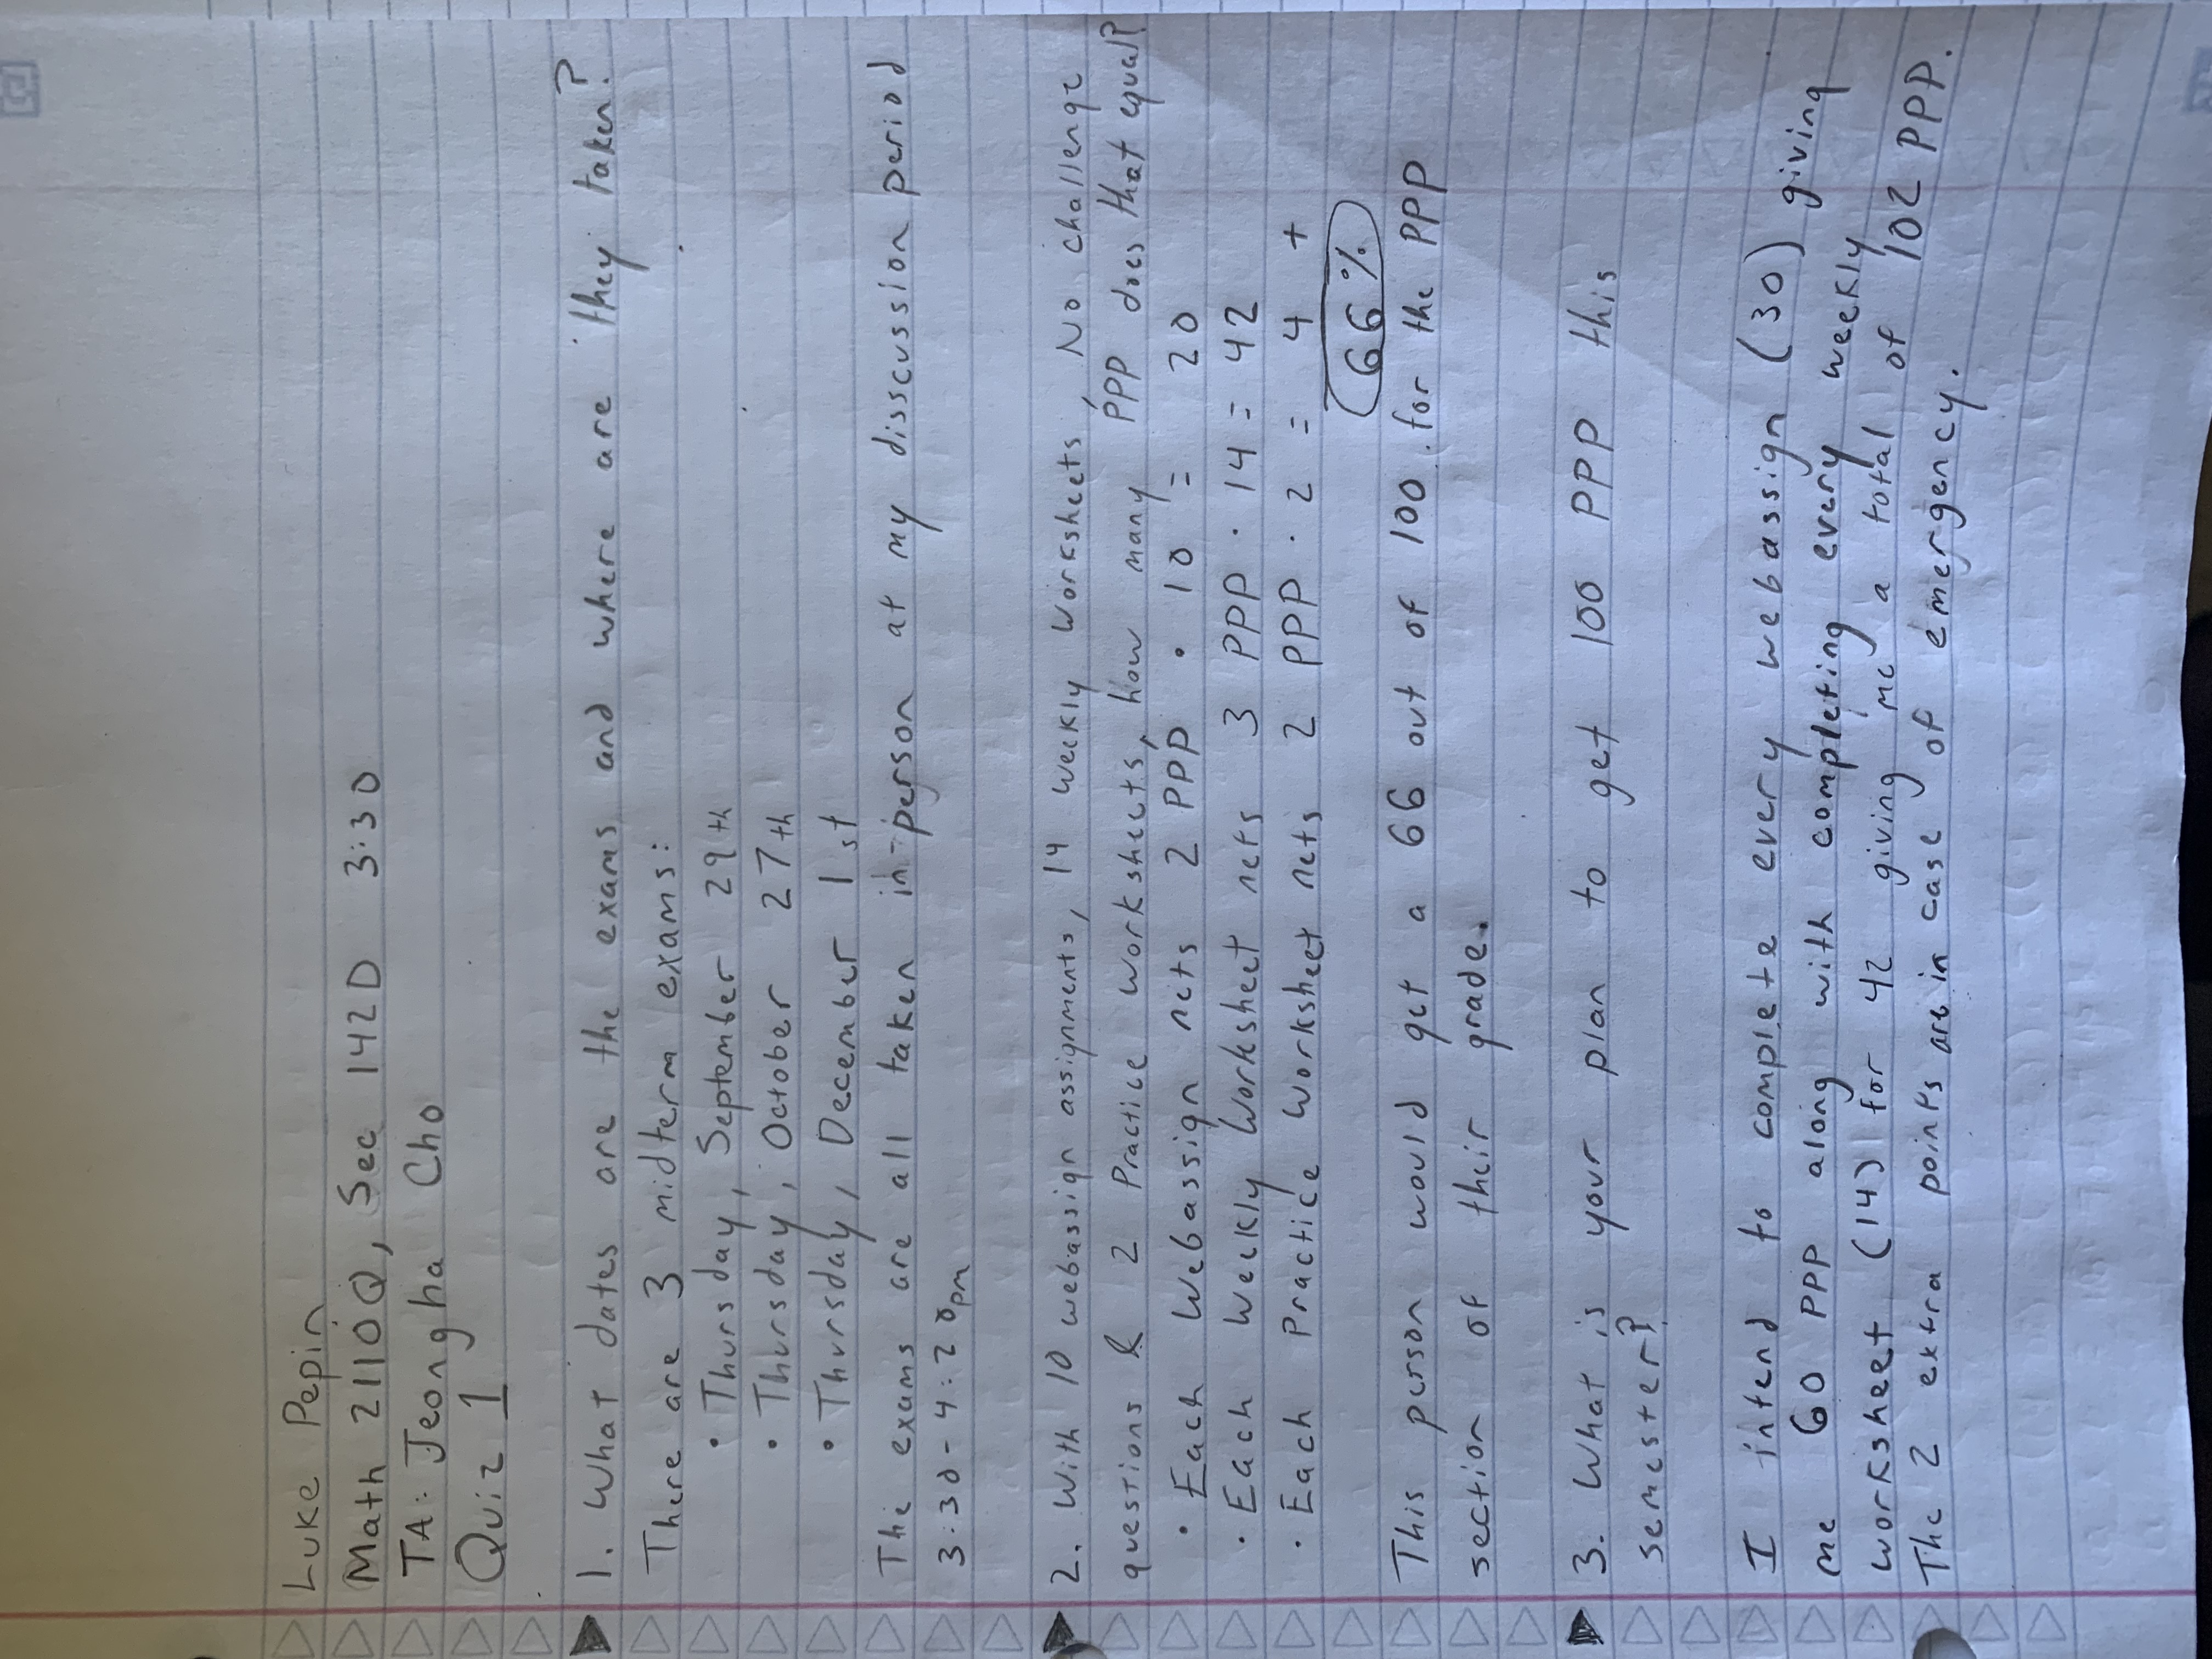 Luke Pepin
Math 2110Q, Sec 142D 3:30
TA: Jeongha Cho
Quiz 1
1. What dates are the exams and where are they taken?
There are 3 midterm exams:
• Thursday, September 29th
• Thursday, October 27th
• Thursday, December 1st
The exams are all taken in-person at my disscussion period
3:30-4:20pm
2. With 10 webassign assignments, 14 Weekly Worksheets, No challenge
questions & 2 Practice Worksheets, how many PPP does that equal?
• Each Webassign nets 2 PPP · 10 = 20
• Each Weekly Worksheet nets 3 PPP · 14 = 42
• Each Practice Worksheet nets 2 PPP · 2 = 4 +
66%
This person would get a 66 out of 100 for the PPP
section of their grade.
3. What is your plan to get 100 PPP this
semester?
I intend to complete every webassign (30) giving
me 60 PPP along with completing every weekly
worksheet (14) for 42 giving me a total of 102 PPP.
The 2 extra points are in case of emergency.